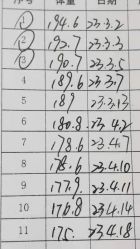 序号 体重 日期
1 194.6 23.3.2
2 192.7 23.3.3
3 190.7 23.3.5
4 189.6 23.3.7
5 189 23.3.13
6 180.8 23.4.2
7 178.6 23.4.7
8 178.6 23.4.10
9 177.9 23.4.11
10 176.8 23.4.14
11 175. 23.4.18